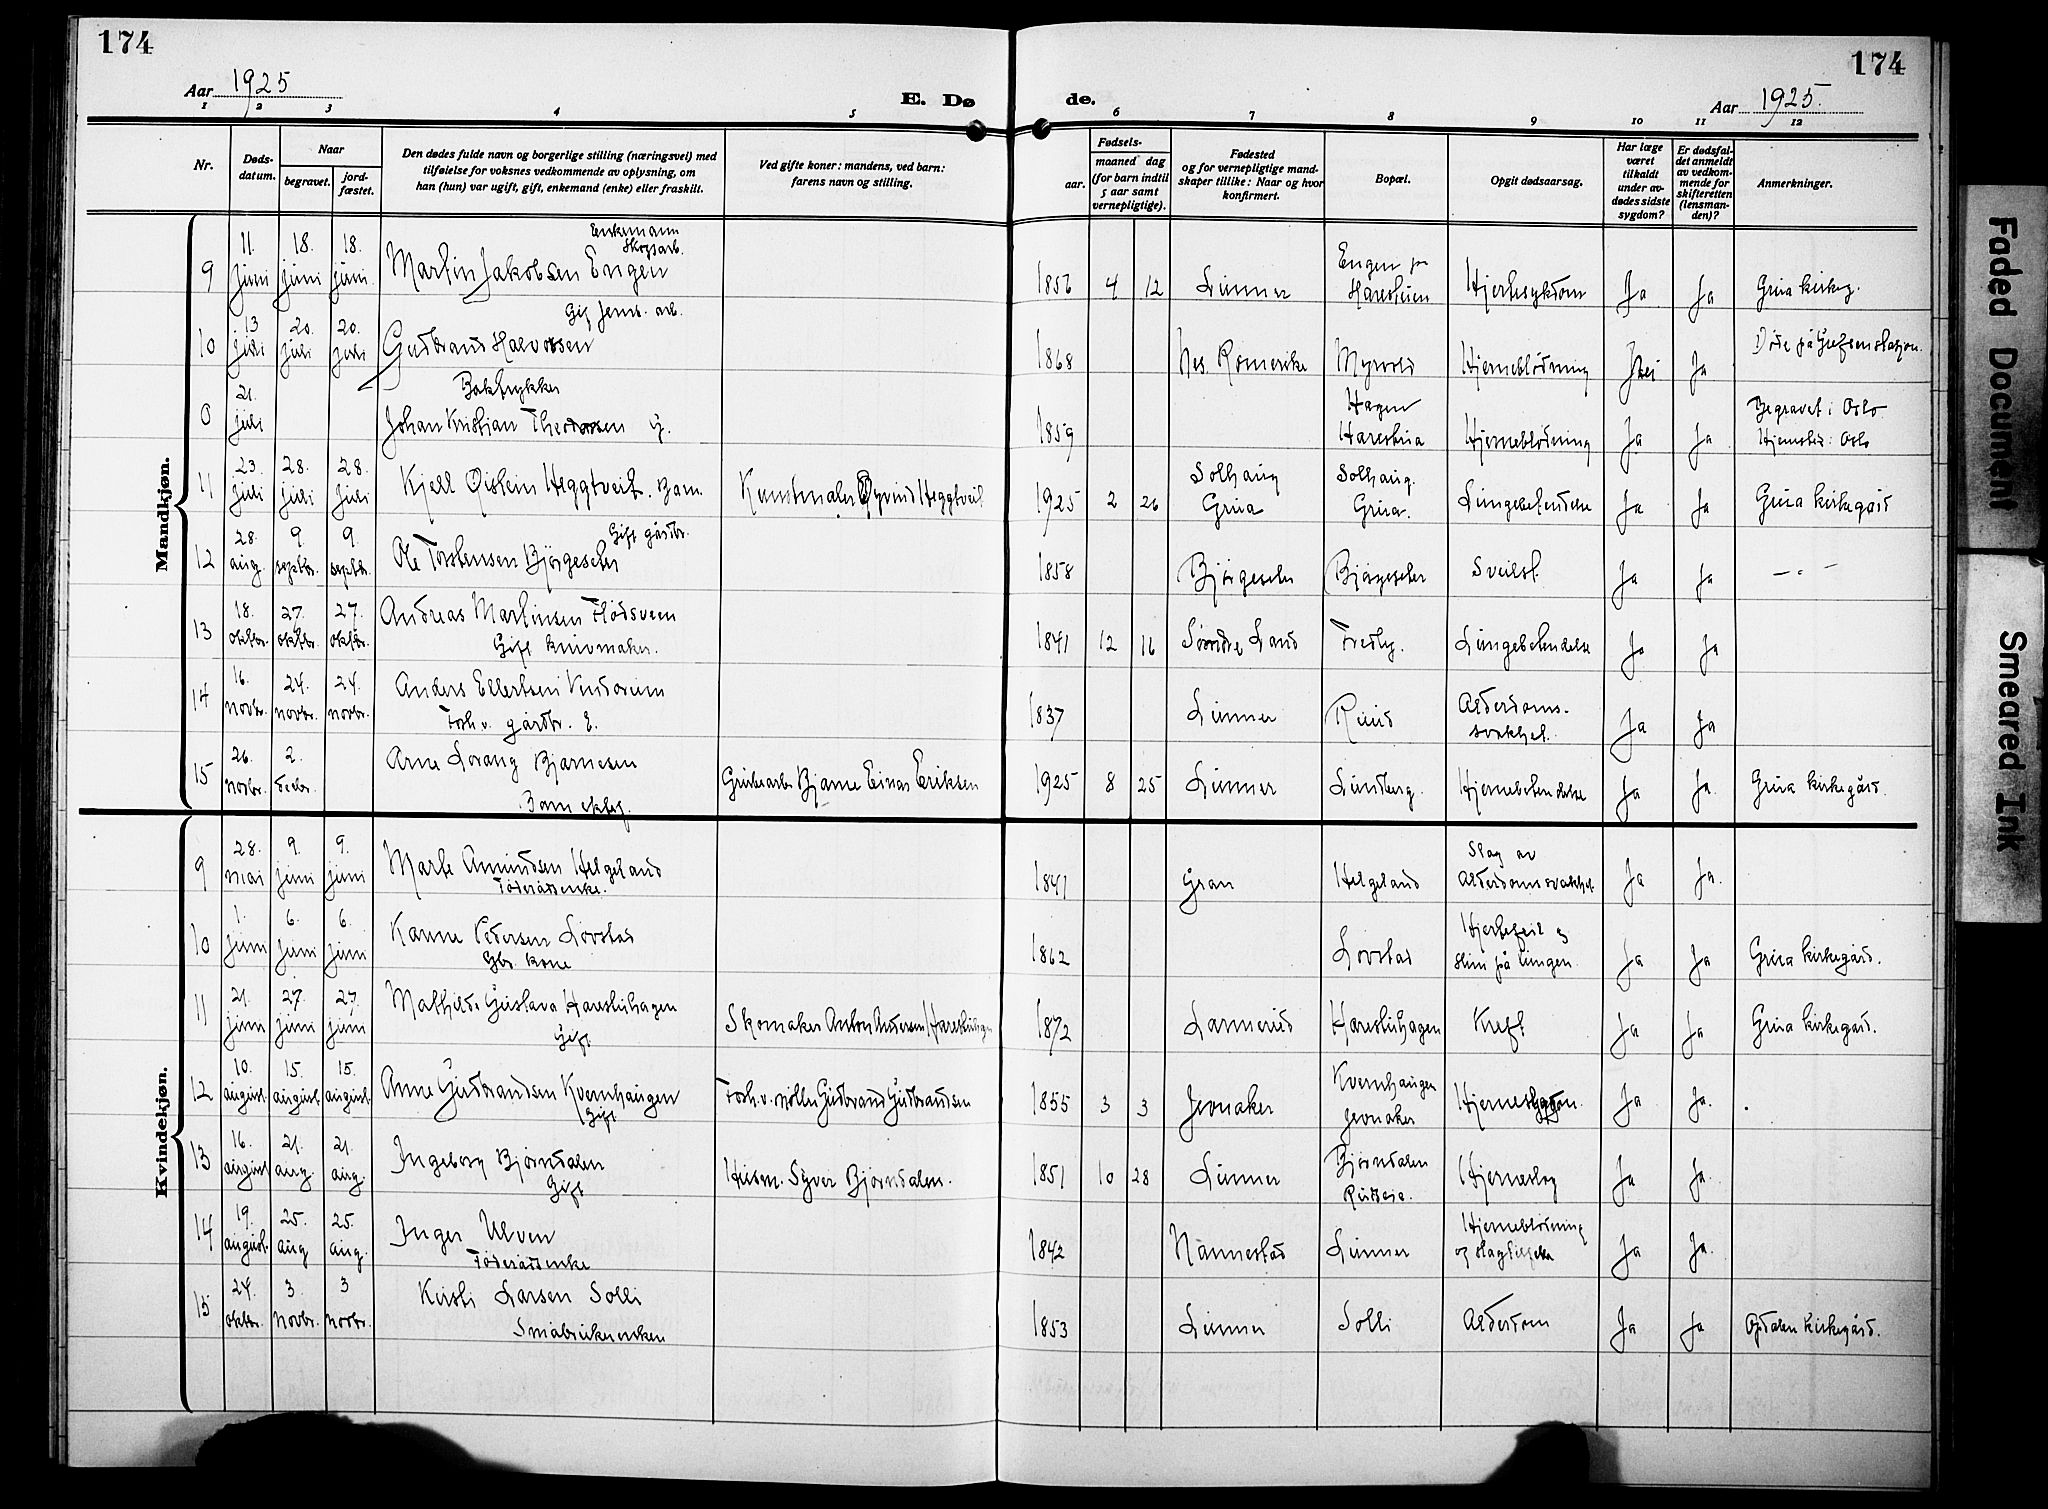 174
174
Aar 1925
E. Dø
de.
Aar 1925.
1 2 3 4 5 6 7 8 9 10 11 12
Nr.
Døds-
datum.
Naar
begravet.
jord-
fæstet.
Den dødes fulde navn og borgerlige stilling (næringsvei) med
tilføielse for voksnes vedkommende av oplysning, om
han (hun) var ugift, gift, enkemand (enke) eller fraskilt.
Ved gifte koner: mandens, ved barn:
farens navn og stilling.
Fødsels-
aar.
maaned dag
(for barn indtil
5 aar samt
vernepligtige).
Fødested
og for vernepligtige mand-
skaper tillike: Naar og hvor
konfirmert.
Bopæl.
Opgit dødsaarsag.
Har læge
været
tilkaldt
under av-
dødes sidste
sygdom?
Er dødsfal-
det anmeldt
av vedkom-
mende for
skifteretten
(lensman-
den)?
Anmerkninger.
Mandkjøn.
Enkemann
Skogsarb.
9 11. juni 18. juni 18. juni Martin Jakobsen Engen 1856 4 12 Lunner Engen Hjertesykdom Ja Ja Grua kirkeg.
Gift Jernb. arb.
10 13 juli 20. juli 20. juli Gudbrand Halvorsen 1868 Nes. Romerike Myrvold Hjerneblödning Nei Ja Döde på Grefsen stasjon.
Boktrykker
0 21. juli Johan Kristian G. 1859 Hagen Harestua Hjerneblödning Ja Ja Begravet i Oslo
Hjemsted: Oslo
11 23. juli 28. juli 28. juli Kjell Öistein Heggtveit. Barn. Kunstmaler Öyvind Heggtveit 1925 2 26 Solhaug Grua Solhaug. Grua. Lungebetendelse Ja Ja Grua kirkegård
Gift gårdbr.
12 28. aug. 9. septbr. 9. septbr. Ole Torstensen Björgeseter 1858 Björgeseter Björgeseter Ja Ja — " —
13 18. oktbr. 27. oktbr. 27. oktbr. Andreas Martinsen Flödsveen
Gift knivmaker. 1841 12 16 Söndre Land Fredly. Lungebetendelse Ja Ja
14 16. novbr. 24. novbr. 24. novbr. Anders Ellertsen
Forh.v. gårdbr. E. 1837 Lunner Ruud Alderdoms-
svakhet. Ja Ja
15 26. novbr. 2. decbr. Arne Lorang Bjarnesen
Barn ektef. Grubearb. Bjarne Einar Eriksen 1925 8 25 Lunner Lundberg. Hjernebetendelse Ja Ja Grua kirkegård.
Kvindekjøn.
9 28. mai 9. juni 9. juni Marte Amundsen Helgeland
Föderådsenke. 1841 Gran Helgeland Slag av
Alderdomsvakhet Ja Ja.
10 1. juni 6. juni 6. juni Karine Pedersen Lovstad
Gbr. kone 1862 Lovstad Hjertefeil og
slim på lungen. Ja Ja Grua kirkegård.
11 21. juni 27. juni 27. juni Mathilde Gustava Harestuhagen
Gift Skomaker Anton Andersen Harestuhagen 1872 Lannerud Harestuhagen Kreft Ja Ja Grua kirkegård.
12 10. august. 15. august. 15. august. Anne Gudbrandsen Kvernhaugen
Gift Forh.v. möller Gudbrand Gudbrandsen 1855 3 3 Jevnaker Kvernhaugen
Jevnaker Ja Ja.
13 16. august 21. aug. 21. aug. Ingeborg Björndalen
Gift Husm. Syver Björndalen. 1851 10 28 Lunner Björndalen Hjerneslag Ja Ja.
14 19. august. 25. aug 25. aug. Inger Ulven
Föderådsenke 1842 Nannestad Lunner Hjerneblödning
og slagtilfelde Ja Ja.
15 24. oktbr. 3. novbr. 3 novbr. Kirsti Larsen Solli
Småbrukerenken 1853 Lunner Solli Alderdom Ja Ja Opdalen kirkegård.
Faded Document
Smeared Ink